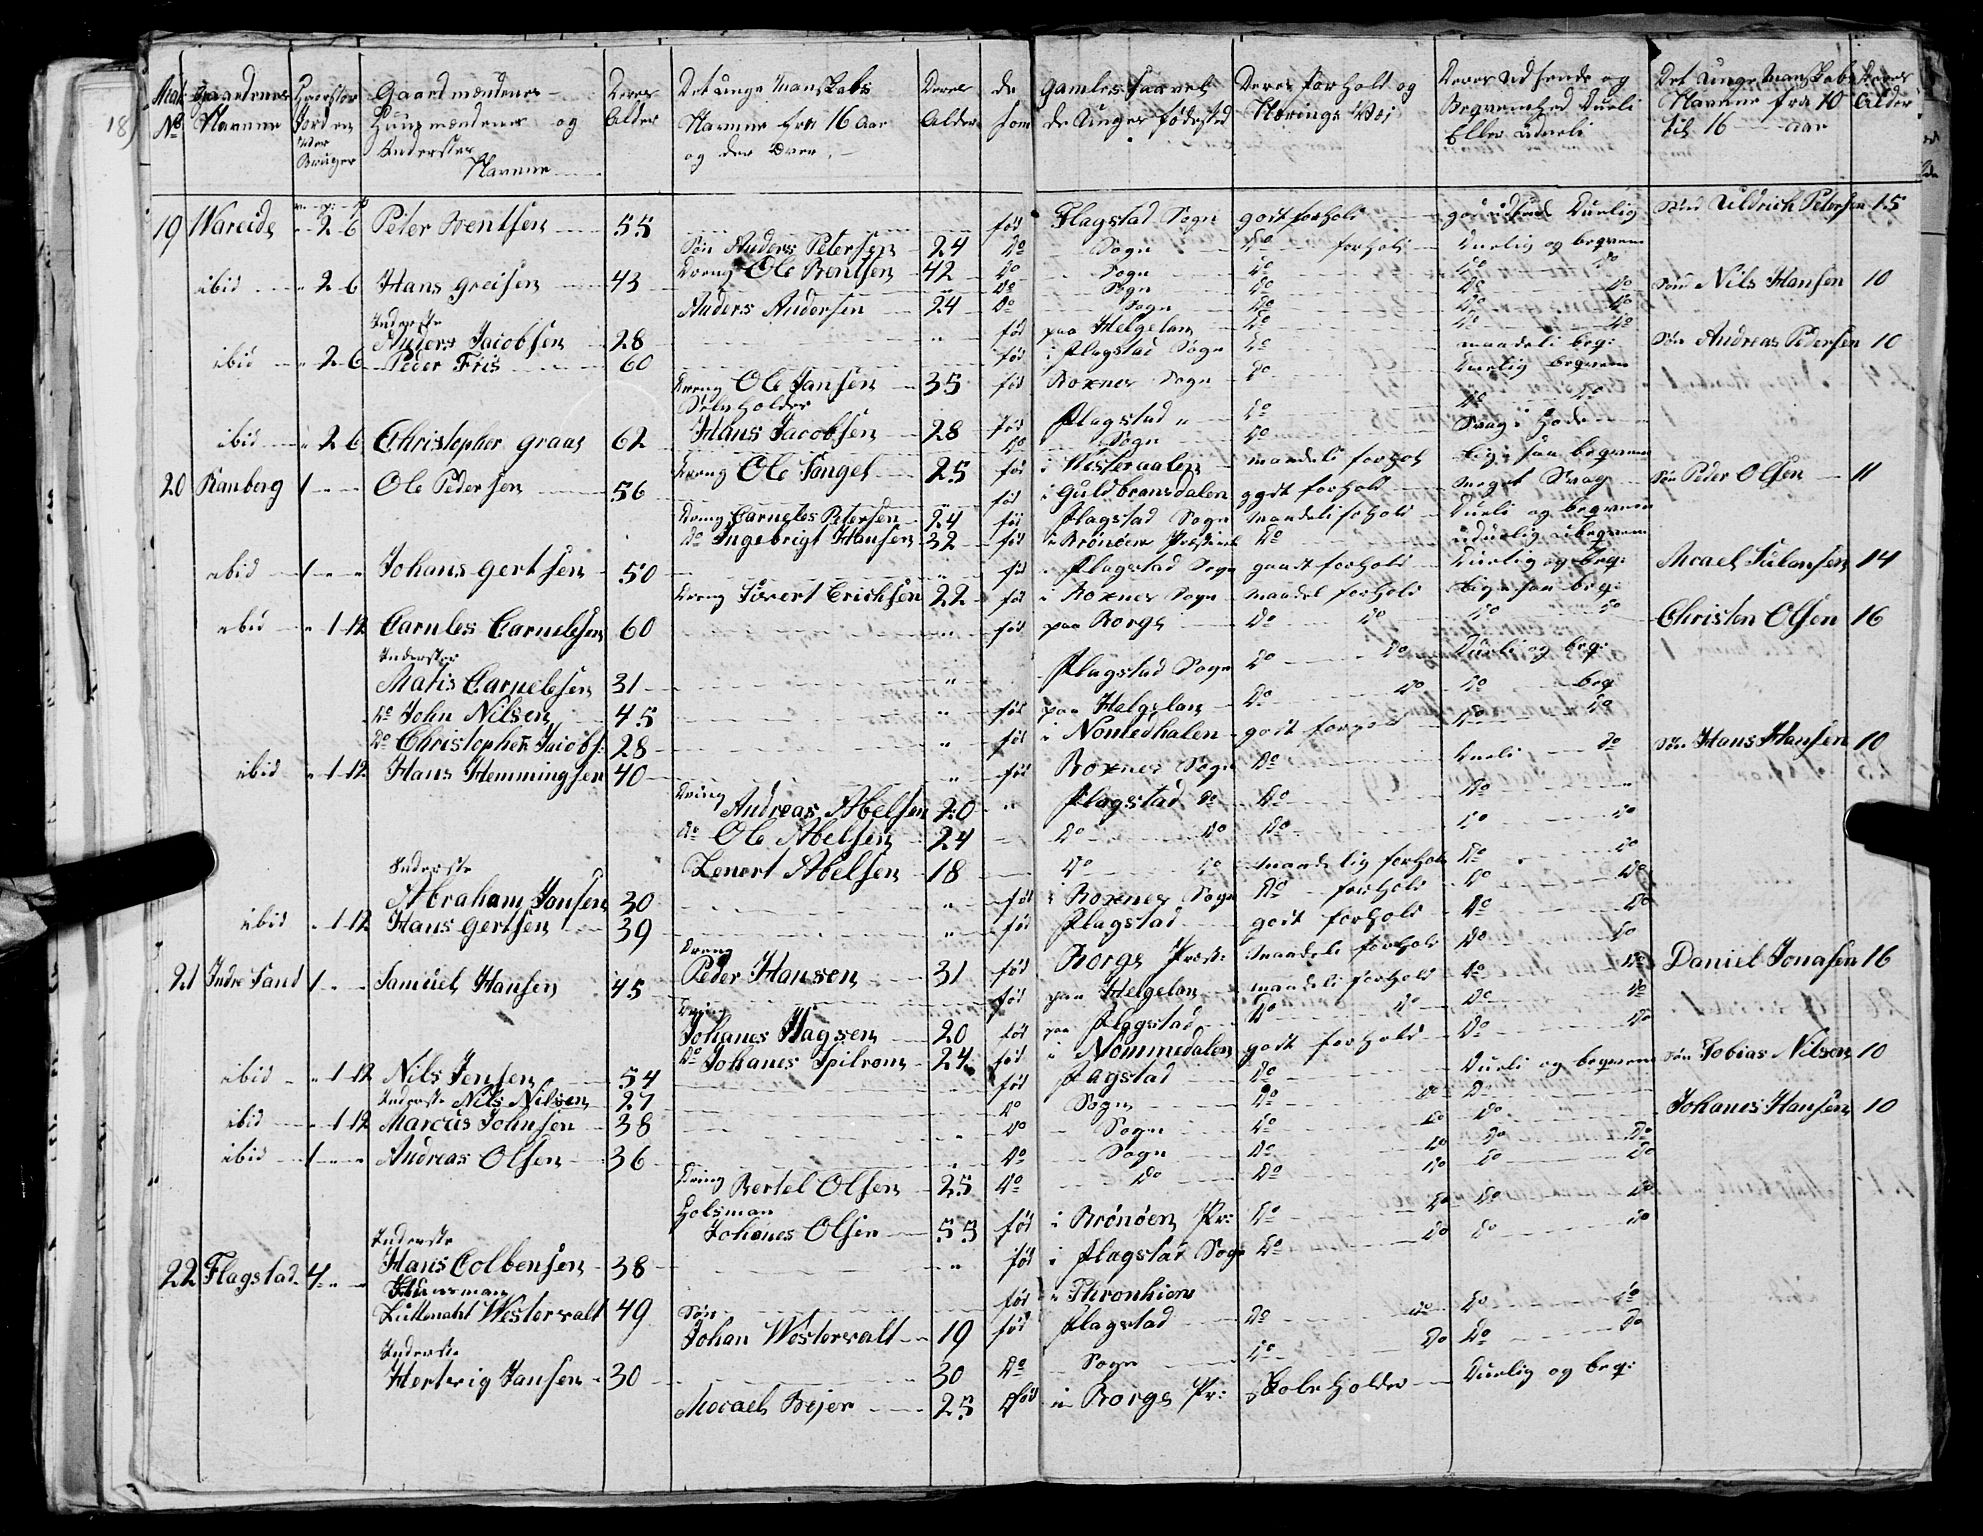 18
Mat No Gaardenes Navne Hvorstor Jord en ider Bruger Gaardmændenes Huusmændenes og Inderster Navne Deres Alder Det unge Manskabs Navne fra 16 Aar og der over Deres Alder de som gamles saavel de Unges fødested Deres forhold og Nærings Vei Deres Udseende og Begvemhed Dueli Eller udueli Det unge Manskabs Navne fra 10 til 16 aar Deres Alder
19 Wareide 2 6 Peter Bentsen 55 fød Flagstad Sogn godt forhold Duelig Søn Uldrich Petersen 15
Søn Anders Petersen 24 Do Sogn Do forhold Duelig og begvem
Dreng Ole Bentsen 42 Do Sogn Do Do Do
ibid 2 6 Hans Greisen 43 Do Sogn Do Do Do Søn Nils Hansen 10
Anders Andersen 24 Do Sogn Do Do Do
Inderste Anders Jacobsen 28 fød paa Helgelan Do Do Do
ibid 2 6 Peder Friis 60 fød i Flagstad Sogn Do maadeli beg: Søn Andreas Pedersen 10
Dreng Ole Jansen 35 fød Boxnes Sogn Do Duelig begvem
Selvholder
Hans Jacobsen 28 fød Flagstad Do Do Do
ibid 2 6 Christopher Graas 62 Do Sogn Do Svag i Hode
Dreng Ole Tangel 25 fød i Westeraalen maadeli forhol ligesaa begvem
20 Ramberg 1 Ole Pedersen 56 fød i Guldbransdalen godt forhold meget Svag Søn Peder Olsen 11
Dreng Carneles Petersen 24 fød Flagstad Sogn maadeli forhold Dueli og begvem
Do Ingebrigt Hansen 32 fød i Brønøen Præstield Do uduelig ubegvem
ibid 1 Johans Gertsen 50 fød Flagstad Sogn gaadt forhold Duelig og beg: Micael Julansen 14
Dreng Sivert Erichsen 22 fød i Boxnes Sogn maadel forhold ligesaa beg:
ibid 1 12 Carnles Carnelesen 60 fød paa Borge Do Do Do Do Christen Olsen 16
Inderster Matis Carnelesen 31 Flagstad Sogn Do Do Dueli og beg:
Do John Nilsen 45 fød paa Helgelan Do Do Do beg
Do Christopher Jacobs: 28 fød i Nomedhalen godt forhold Do Do
ibid 1 12 Hans Hemmingsen 40 fød Boxnes Sogn Do Dueli Do Søn Hans Hansen 10
Dreng Andreas Abelsen 20 Flagstad Do Do Do
Do Ole Abelsen 24 Do Do Do Do Do
Lenert Abelsen 18 Do Do maadelig forhold Do Do
Inderste Abraham Jansen 30 fød i Boxnes Sogn Do forhold Do Do
ibid 1 12 Hans Gertsen 39 fød Flagstad godt forhold Do Do
Dreng Peder Hansen 31 fød Borge Præst: maadeli forhold Do Do Daniel Jonasen 16
21 Indre Sand 1 Samuel Hansen 45 fød paa Helgelan maadeli forhold Do Do
Dreng Johanes Hagsen 20 fød paa Flagstad Do Do Do Do
Do Johanes Spilrom 24 fød i Nommedalen godt forhold Do Do
ibid 1 12 Nils Jensen 54 fød Flagstad Do Dueli og begvem Søn Tobias Nilsen 10
Inderste Nils Nilsen 27 Do Sogn Do Do Do
ibid 1 12 Marcus Johnsen 38 Do Sogn Do Do Do Johanes Hansen 10
ibid 1 Andreas Olsen 36 Do Sogn Do Do Do Do
Dreng Bertel Olsen 25 Do Do Do Do Do Do
Holsman Johanes Olsen 55 fød i Brønøen Pr: Do Do Do Do
Inderste
22 Flagstad 4 Hans Colbensen 38 fød i Flagstad Sogn Do Do Do Do
Huusman Luttenant Westervalt 49 fød i Theronhiem
Søn Johan Westervalt 19 fød Flagstad Do Do Do Do
Inderste Hertvig Jansen 30 30 Do Sogn Do Do Do Do
Mocael Bejer 25 fød i Borge Pr: Skoleholder Duelig og beg: